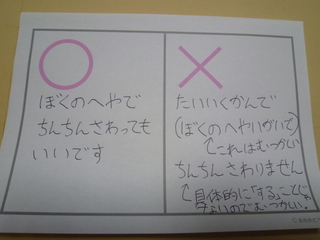 ぼくのへやで
ちんちんさわっても
いいです
たいいくかんで
(ぼくのへやいがいで)
↑これはむつかしい
ちんちんさわりません
↑具体的に「する」ことじゃ
ないのでむつかしい。